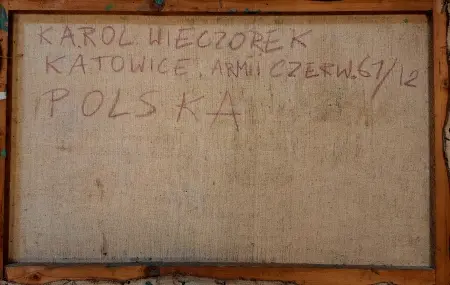 KAROL WIECZOREK
KATOWICE, ARMII CZERW. 67/12
POLSKA